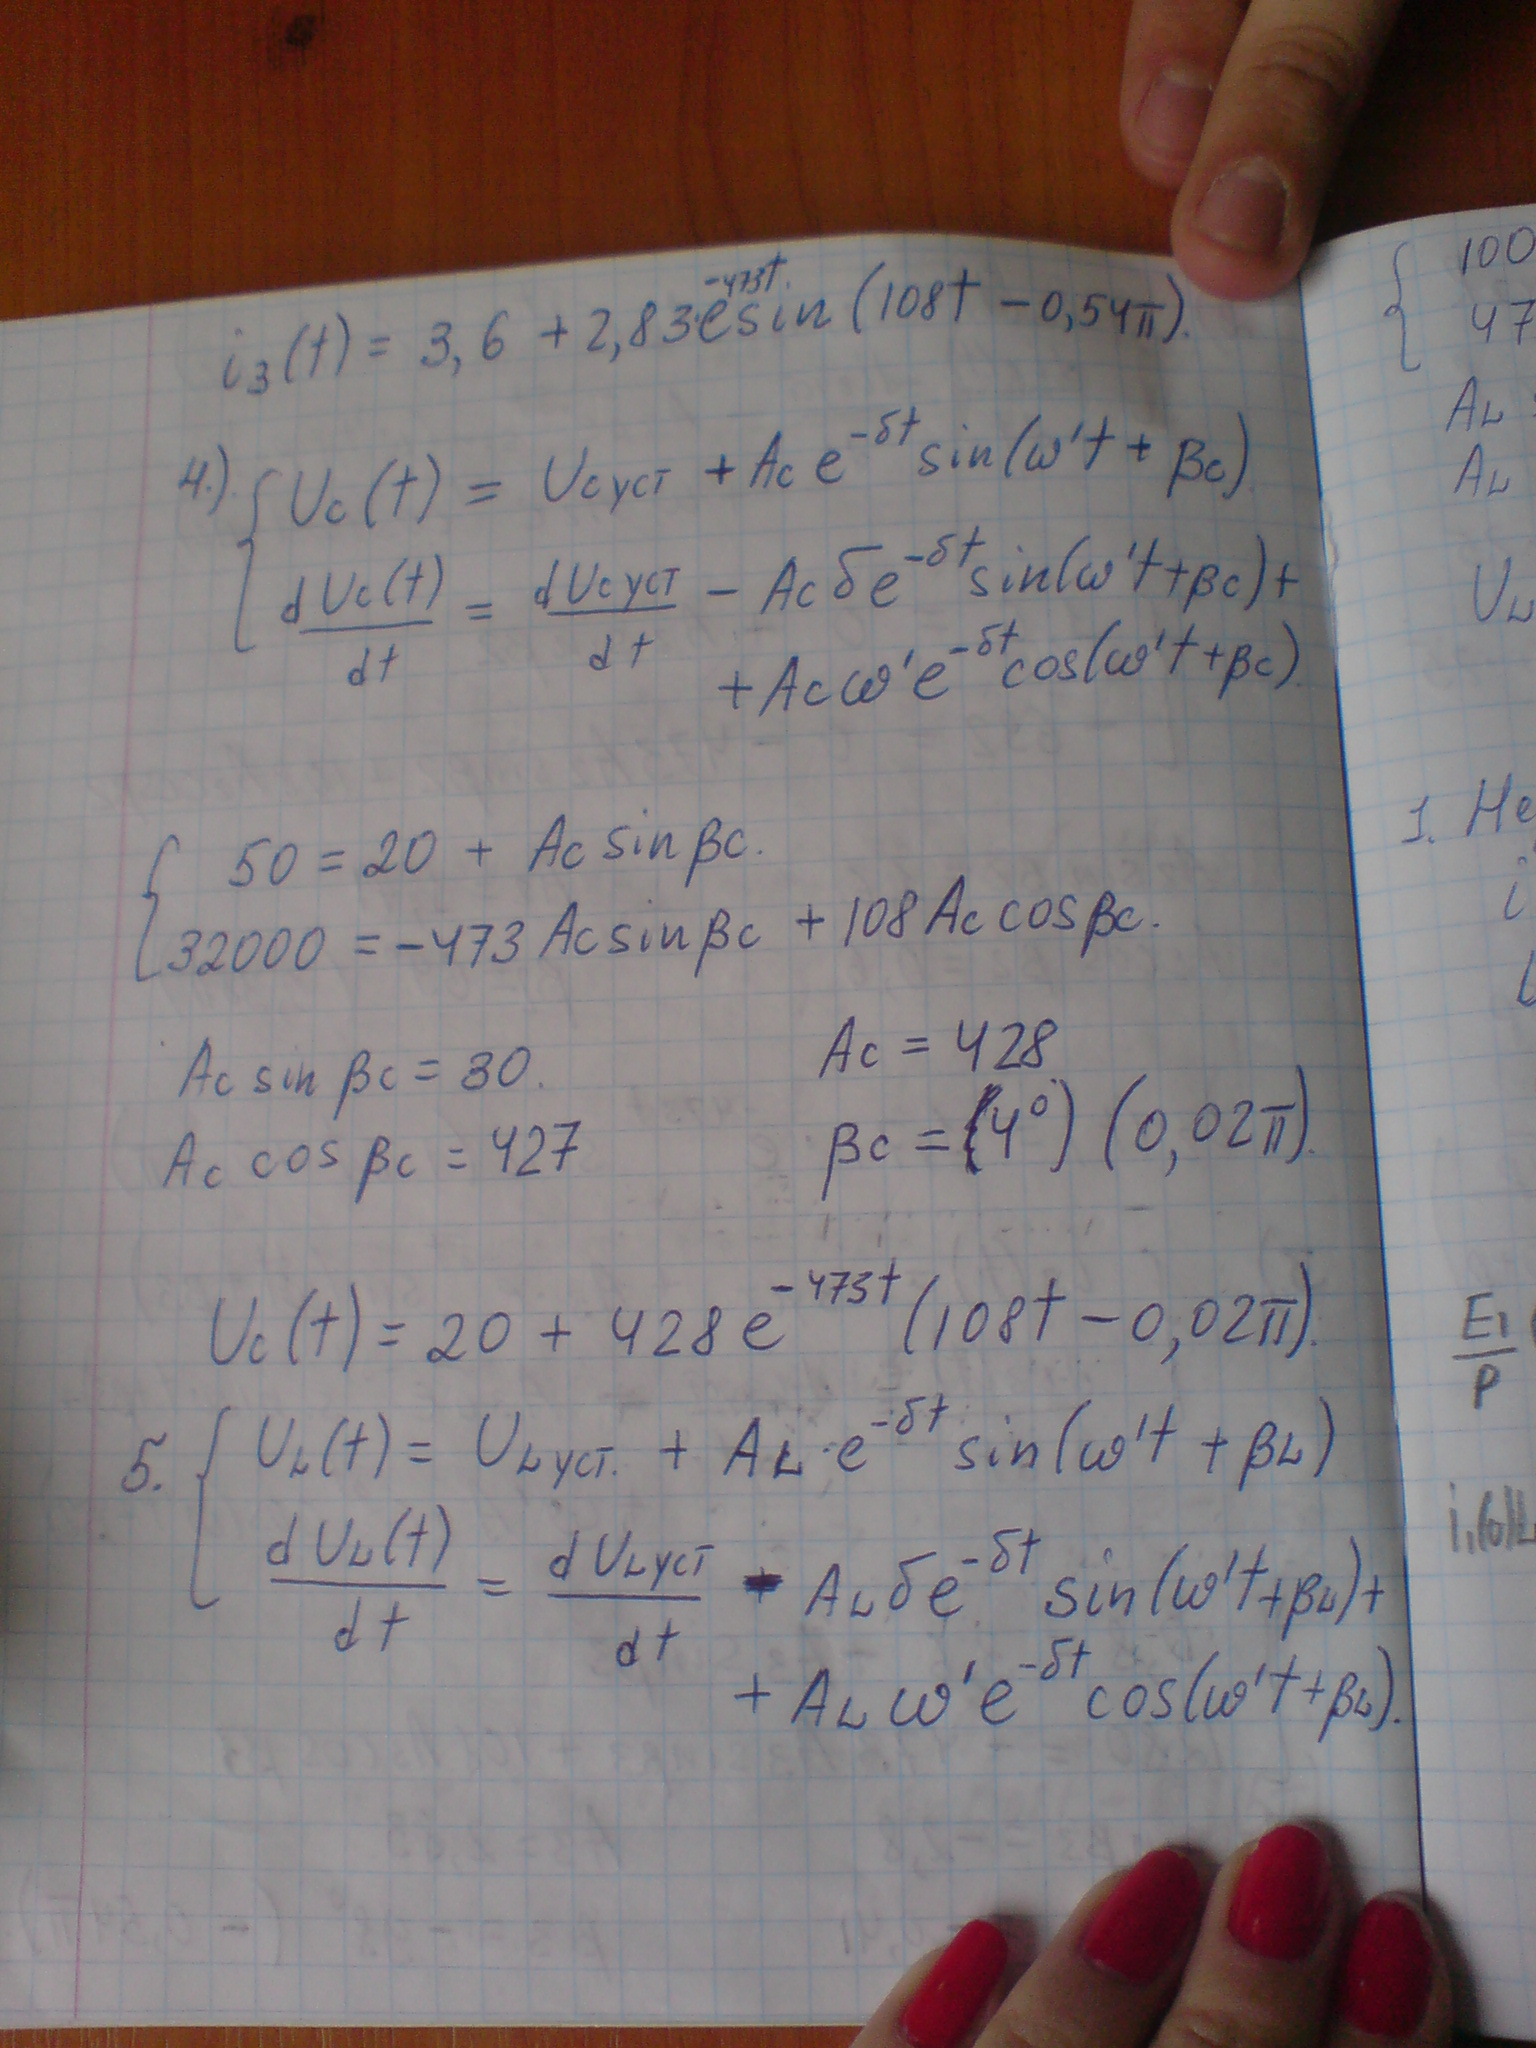 i₃(t) = 3,6 + 2,83·e^(-473t) sin(108t - 0,54π).
4.) { Uc(t) = Uc уст + Ac e^(-δt) sin(ω't + βc)
dUc(t)/dt = dUc уст/dt - Ac δe^(-δt) sin(ω't + βc) +
+ Ac ω'e^(-δt) cos(ω't + βc)
{ 50 = 20 + Ac sin βc.
32000 = -473 Ac sin βc + 108 Ac cos βc.
Ac sin βc = 30. Ac = 428
Ac cos βc = 427 βc = (4°) (0,02π).
Uc(t) = 20 + 428 e^(-473t) (108t - 0,02π).
5. { UL(t) = UL уст. + AL·e^(-δt) sin(ω't + βL)
dUL(t)/dt = dUL уст/dt - AL δe^(-δt) sin(ω't + βL) +
+ AL ω'e^(-δt) cos(ω't + βL).
{ 100
47
AL
AL
UL
1. Не
i
E1/p